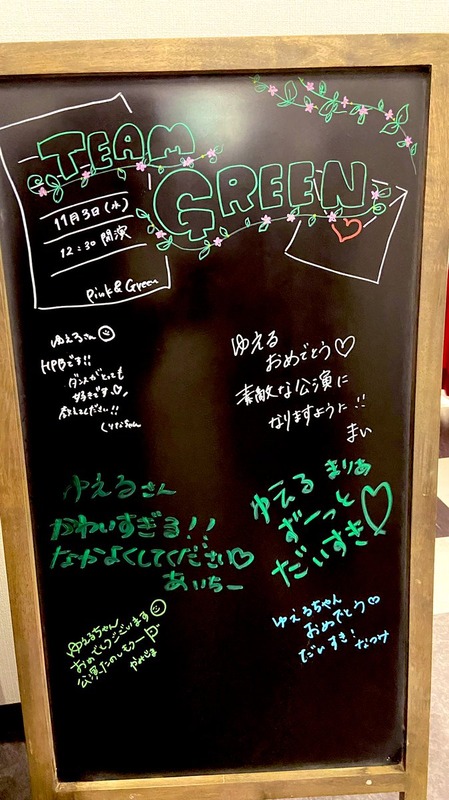 TEAM
GREEN
11月3日(水)
12:30 開演
Pink & Green
ゆえるさん
HPBです!!
ダンスがとっても
好きです♡
教えてください!!
くりなちゃん
ゆえる
おめでとう♡
素敵な公演に
なりますように!!
まい
ゆえるさん
かわいすぎる!!
なかよくしてください♡
あいちー
ゆえる まりあ
ずーっと
だいすき!♡
ゆえるちゃん
おめでとうございます
公演たのしもうー
ゆえるちゃん
おめでとう♡
だいすき!
なつけ